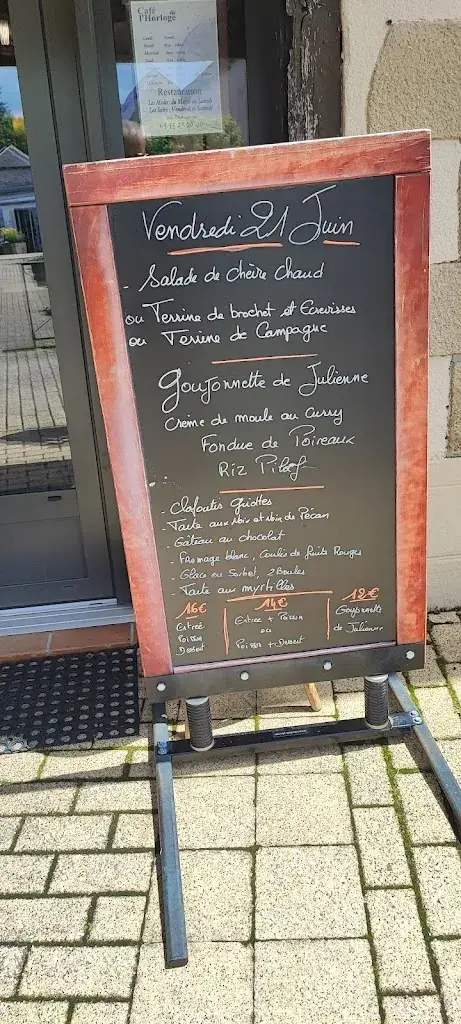 Café
l'Horloge
Restauration
Vendredi 21 Juin
- Salade de chèvre Chaud
ou Terrine de brochet et Ecrevisses
ou Terrine de Campagne
Goujonnette de Julienne
Crème de moule au curry
Fondue de Poireaux
Riz Pilaf
- Clafoutis Griottes
- Tarte aux Noix et Noix de Pécan
- Gâteau au chocolat
- Fromage blanc, Coulis de fruits Rouges
- Glace ou Sorbet, 2 Boules
- Tarte aux myrtilles
16€
Entreé
Poisson
Dessert
14€
Entree + Poisson
ou
Poisson + Dessert
12€
Goujonnette
de Julienne